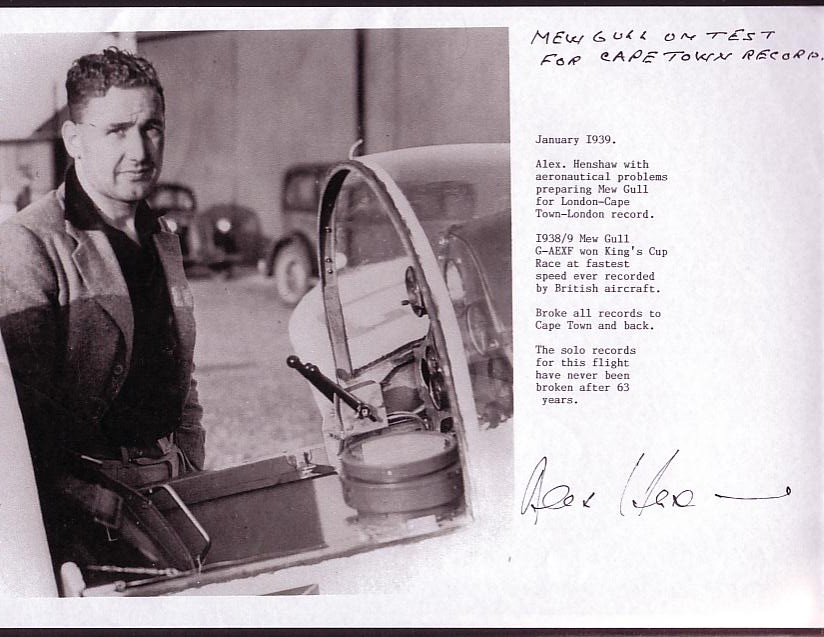 MEW GULL ON TEST
FOR CAPE TOWN RECORD.
January I939.
Alex. Henshaw with
aeronautical problems
preparing Mew Gull
for London-Cape
Town-London record.
I938/9 Mew Gull
G-AEXF won King's Cup
Race at fastest
speed ever recorded
by British aircraft.
Broke all records to
Cape Town and back.
The solo records
for this flight
have never been
broken after 63
years.
Alex Henshaw